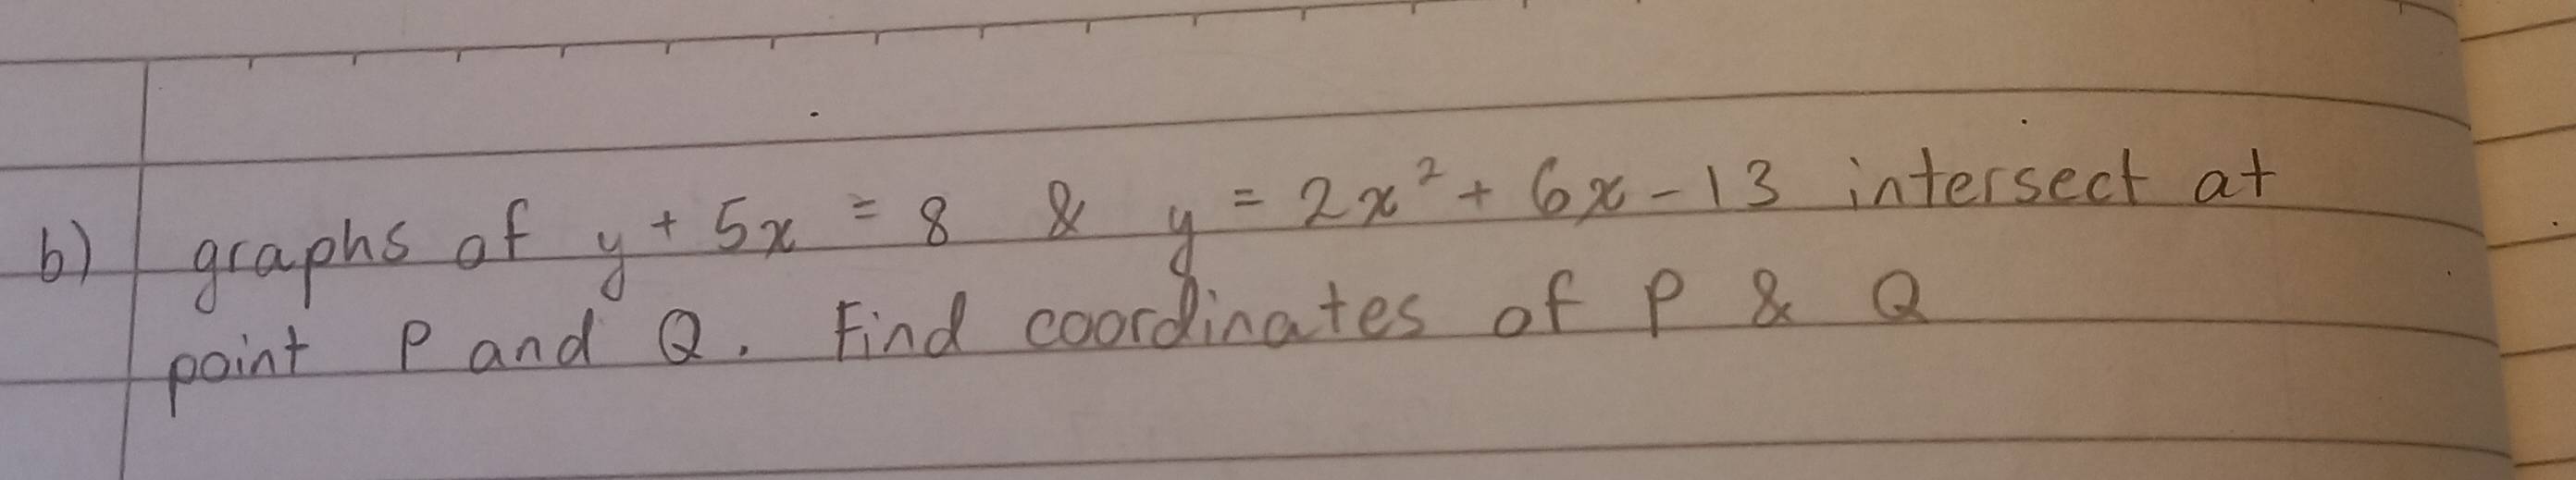 b) graphs of y + 5x = 8 & y = 2x² + 6x - 13 intersect at
point P and Q. Find coordinates of P & Q